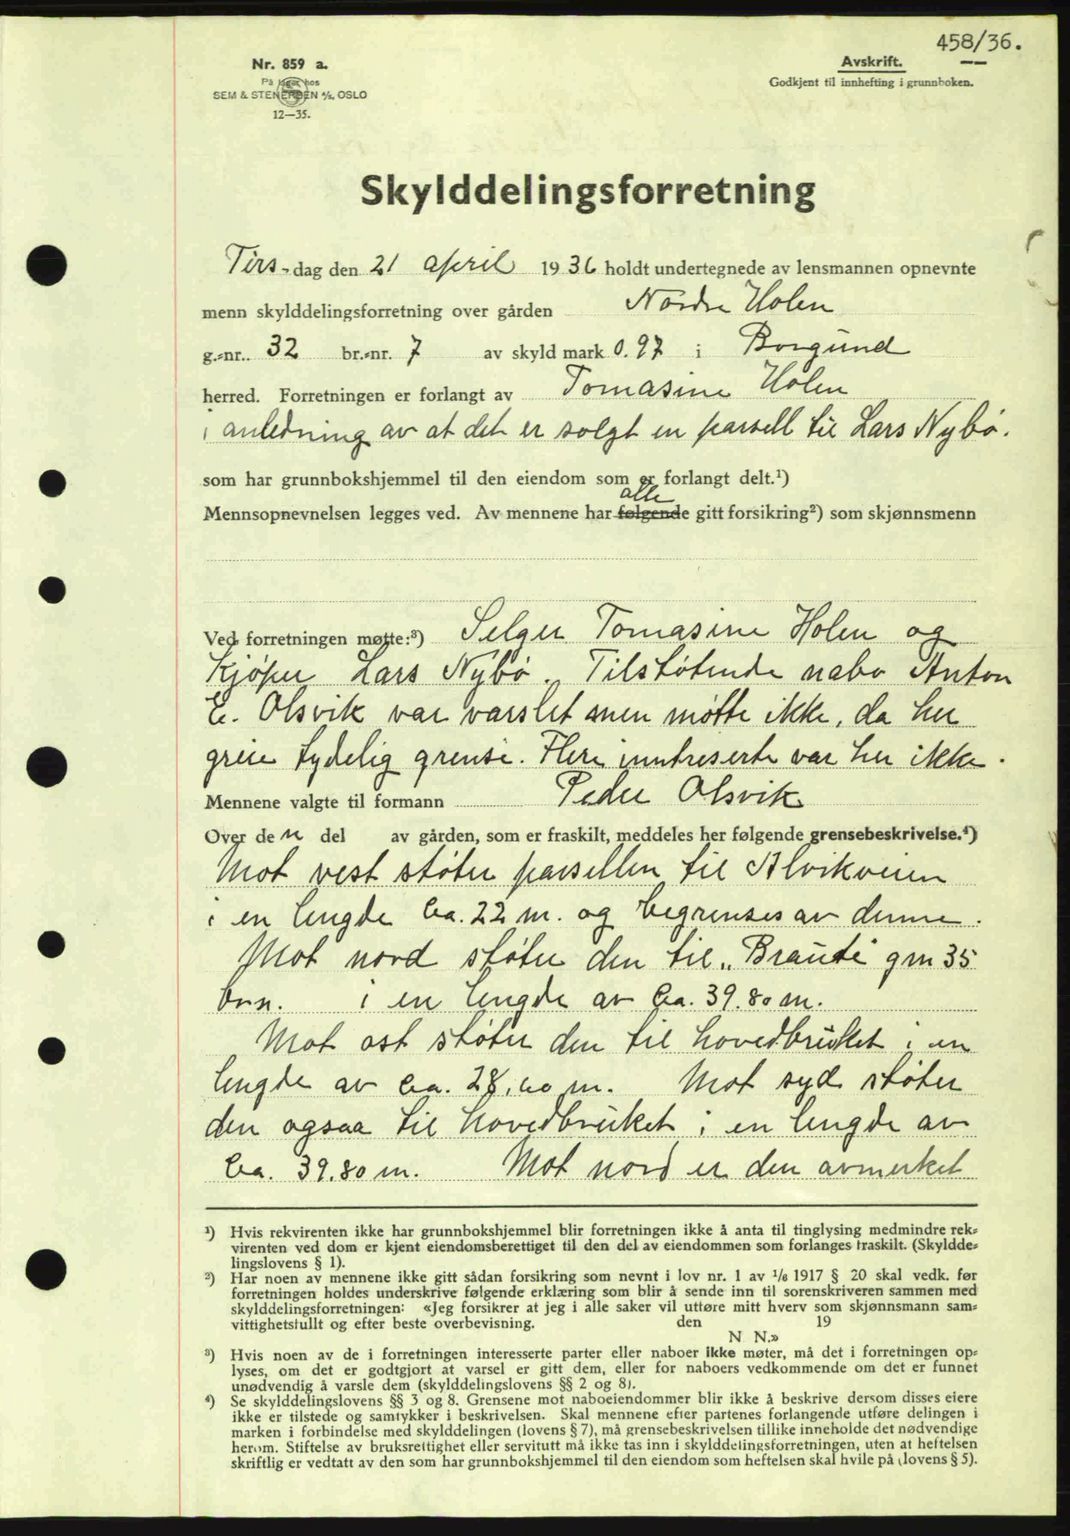 458/36.
Nr. 859 a.
På lager hos
SEM & STENERSEN A/S, OSLO
12—35.
Avskrift.
Godkjent til innhefting i grunnboken.
Skylddelingsforretning
Tirs-dag den 21 april 1936 holdt undertegnede av lensmannen opnevnte
menn skylddelingsforretning over gården Nordre Holen
g.-nr. 32 br.-nr. 7 av skyld mark 0.97 i Borgund
herred. Forretningen er forlangt av Tomasine Holen
i anledning av at det er solgt en parsell til Lars Nybø.
som har grunnbokshjemmel til den eiendom som er forlangt delt.¹)
alle
Mennsopnevnelsen legges ved. Av mennene har følgende gitt forsikring²) som skjønnsmenn
Ved forretningen møtte:³) Selger Tomasine Holen og
Kjøper Lars Nybø. Tilstøtende nabo Anton
E. Olsvik var varslet men møtte ikke, da her
greie tydelig grense. Flere inntreserte var her ikke.
Mennene valgte til formann Peder Olsvik
Over den del av gården, som er fraskilt, meddeles her følgende grensebeskrivelse.⁴)
Mot vest støter parsellen til Alvikveien
i en lengde ca. 22 m. og begrenses av denne.
Mot nord støter den til „Braute" gnr 35
brn. i en lengde av ca. 39.80 m.
Mot øst støter den til hovedbruket i en
lengde av ca. 28,60 m. Mot syd støter
den ogsaa til hovedbruket i en lengde av
ca. 39.80 m. Mot nord er den avmerket
¹) Hvis rekvirenten ikke har grunnbokshjemmel blir forretningen ikke å anta til tinglysing medmindre rek-
virenten ved dom er kjent eiendomsberettiget til den del av eiendommen som forlanges fraskilt. (Skyldde-
lingslovens § 1).
²) Har noen av mennene ikke gitt sådan forsikring som nevnt i lov nr. 1 av 1/6 1917 § 20 skal vedk. før
forretningen holdes underskrive følgende erklæring som blir å sende inn til sorenskriveren sammen med
skylddelingsforretningen: «Jeg forsikrer at jeg i alle saker vil utføre mitt hverv som skjønnsmann sam-
vittighetsfullt og efter beste overbevisning. den 19
N N.»
³) Hvis noen av de i forretningen interesserte parter eller naboer ikke møter, må det i forretningen op-
lyses, om det er godtgjort at varsel er gitt dem, eller for naboers vedkommende om det er funnet
unødvendig å varsle dem (skylddelingslovens §§ 2 og 8).
⁴) Se skylddelingslovens §§ 3 og 8. Grensene mot naboeiendommer blir ikke å beskrive dersom disses eiere
ikke er tilstede og samtykker i beskrivelsen. Skal mennene efter partenes forlangende utføre delingen i
marken i forbindelse med skylddelingen (lovens § 7), må grensebeskrivelsen tillike inneholde det nødvendige
herom. Stiftelse av bruksrettighet eller servitutt må ikke tas inn i skylddelingsforretningen, uten at heftelsen
skriftlig er vedtatt av den som har grunnbokshjemmel til den eiendom som heftelsen skal hvile på (lovens § 5).